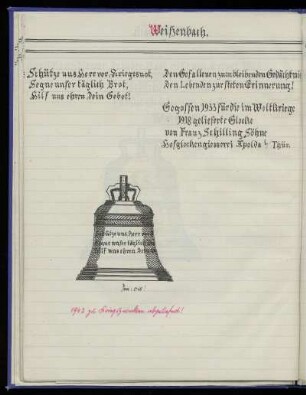 Weißenbach.
Schütze uns Herr vor Kriegesnot,
Segne unser täglich Brot,
Hilf uns ehren Dein Gebot!
Den Gefallenen zum bleibenden Gedächtnis
Den Lebenden zur steten Erinnerung!
Gegossen 1933 für die im Weltkriege
1918 gelieferte Glocke
von Franz Schilling Söhne
Hofglockengießerei Apolda i/ Thür.
Schütze uns Herr vor
Segne unser täglich Br
Hilf uns ehren Dein
1942 zu Kriegszwecken abgeliefert!